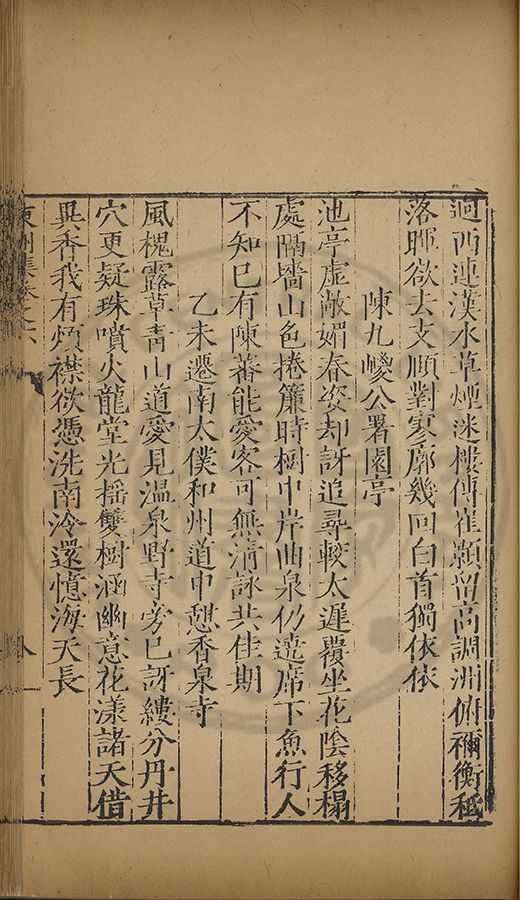 迥西連漢水草煙迷樓傳崔顥留高調洲俯禰衡秪
落暉欲去支頤對寥廓幾回白首獨依依
陳九㠇公署園亭
池亭虛敞媚春姿却訝追尋較太遲覆坐花陰移榻
處隔墻山色捲簾時樹中岸曲泉仍遶席下魚行人
不知已有陳蕃能愛客可無淸詠共佳期
乙未遷南太僕和州道中憩香泉寺
風槐露草靑山道愛見溫泉野寺旁已訝縷分丹井
穴更疑珠噴火龍堂光搖雙樹涵幽意花漾諸天借
異香我有煩襟欲憑洗南泠還憶海天長
東洲集卷之六
八